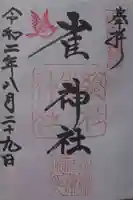 奉拝
雀神社
令和二年八月二十九日